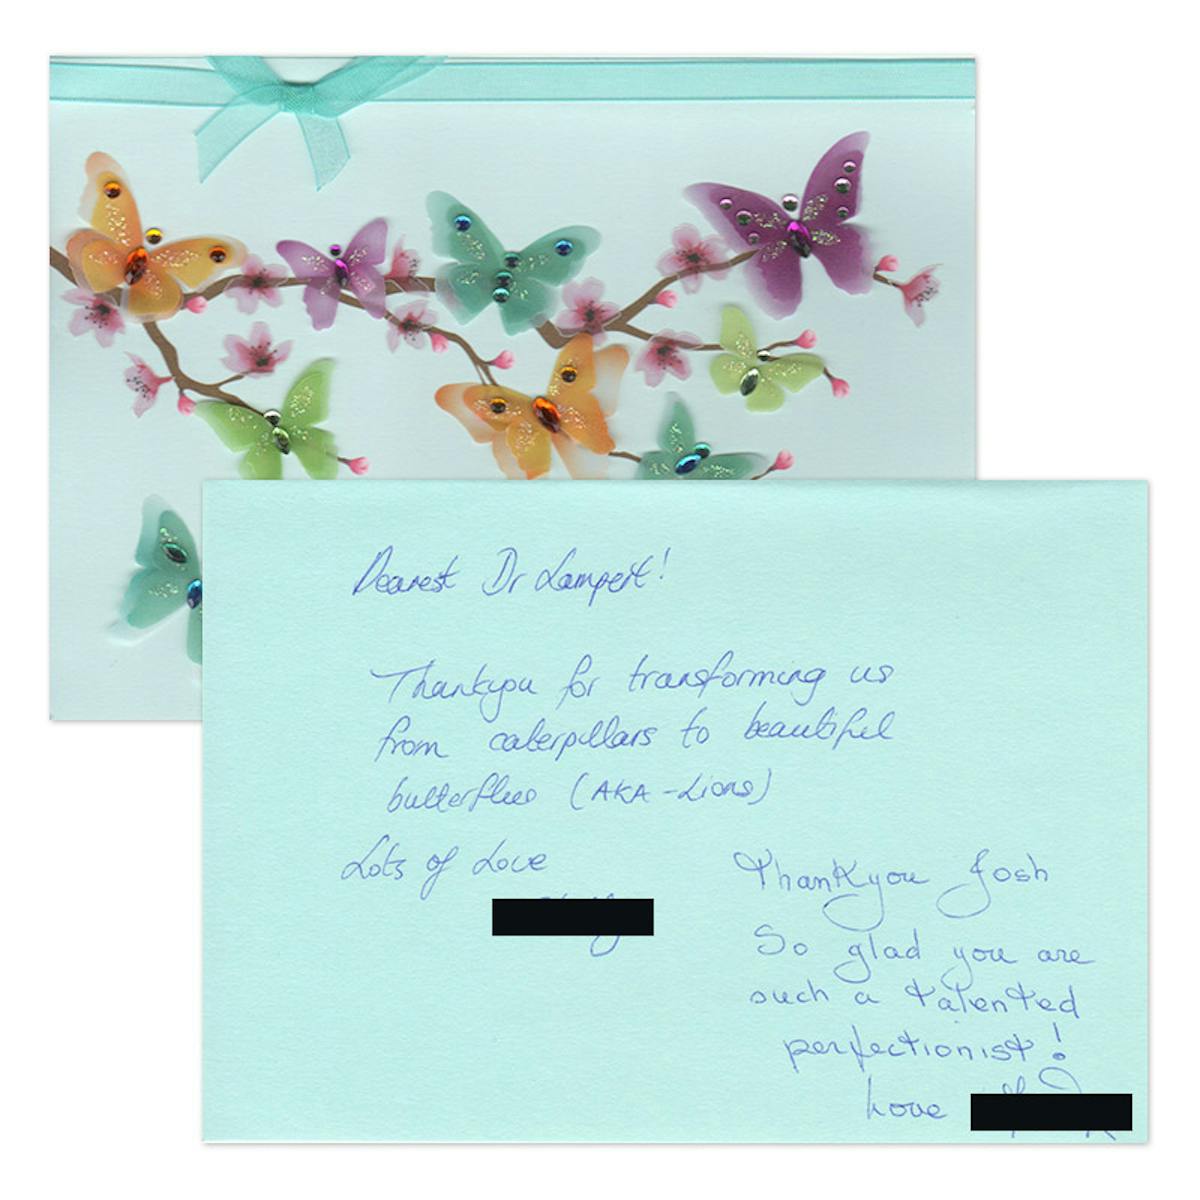 Dearest Dr Lampert!
Thankyou for transforming us
from caterpillars to beautiful
butterflies (AKA - Lions)
Lots of Love
Thankyou Josh
So glad you are
such a talented
perfectionist!
Love